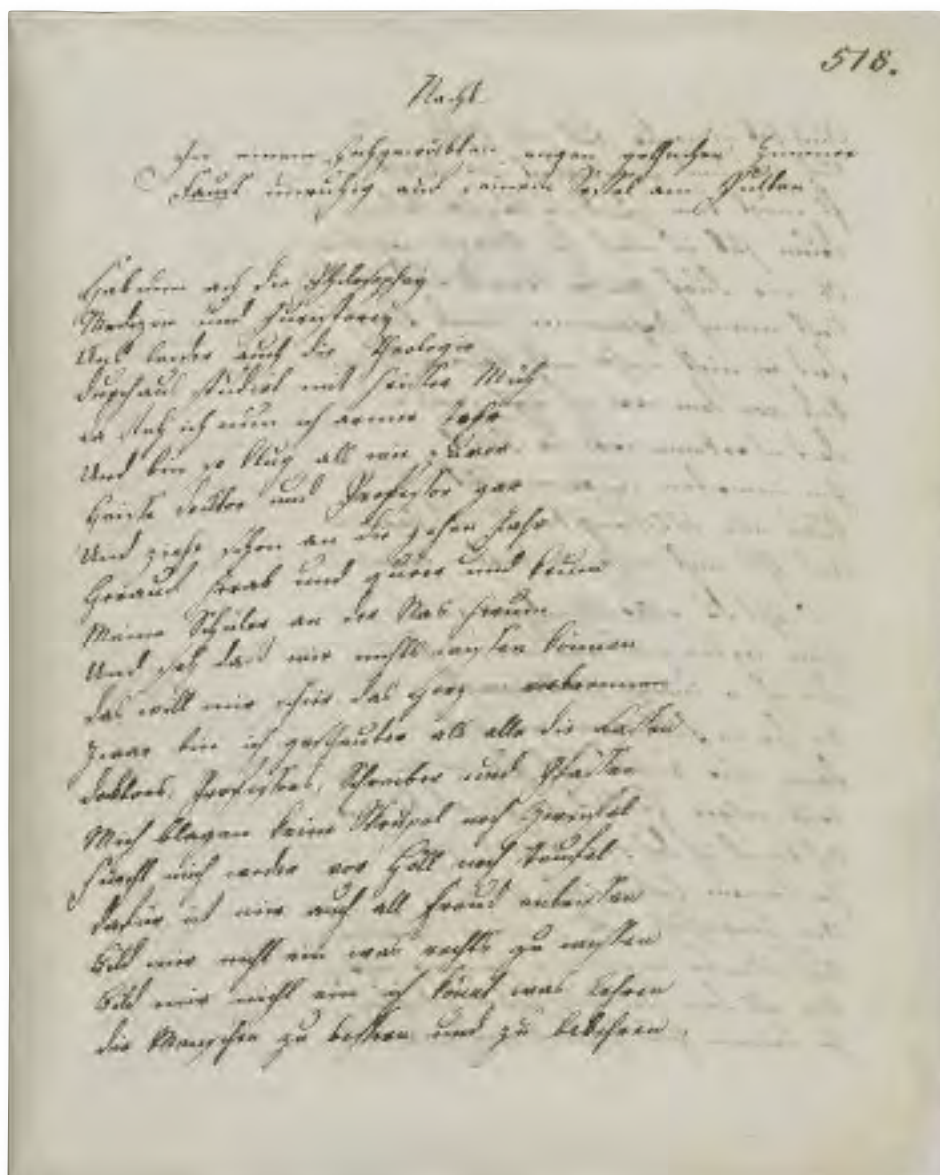 518.
Nacht.
In einem hochgewölbten engen gothischen Zimmer
Faust unruhig auf seinem Sessel am Pulten.
Hab nun ach die Philosophey
Medizin und Juristerey,
Und leider auch die Theologie
Durchaus studirt mit heisser Müh.
Da steh ich nun ich armer Tohr
Und bin so klug als wie zuvor.
Heisse Docktor und Professor gar
Und ziehe schon an die zehen Jahr
Herauf herab und queer und krum
Meine Schüler an der Nas herum
Und seh dass wir nichts wissen können
Das will mir schier das Herz verbrennen
Zwar bin ich gescheuter als alle die Laffen
Docktors, Professors, Schreiber und Pfaffen
Mich plagen keine Skrupel noch Zweifel
Fürcht mich weder vor Höll noch Teufel.
Dafür ist mir auch all Freud entrissen
Bild mir nicht ein was rechts zu wissen
Bild mir nicht ein ich könnt was lehren
Die Menschen zu bessern und zu bekehren,